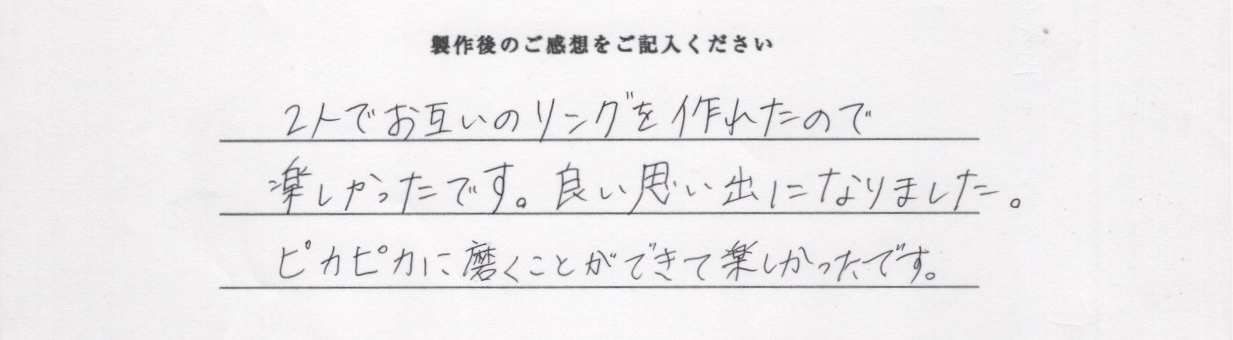 製作後のご感想をご記入ください
2人でお互いのリングを作れたので
楽しかったです。良い思い出になりました。
ピカピカに磨くことができて楽しかったです。